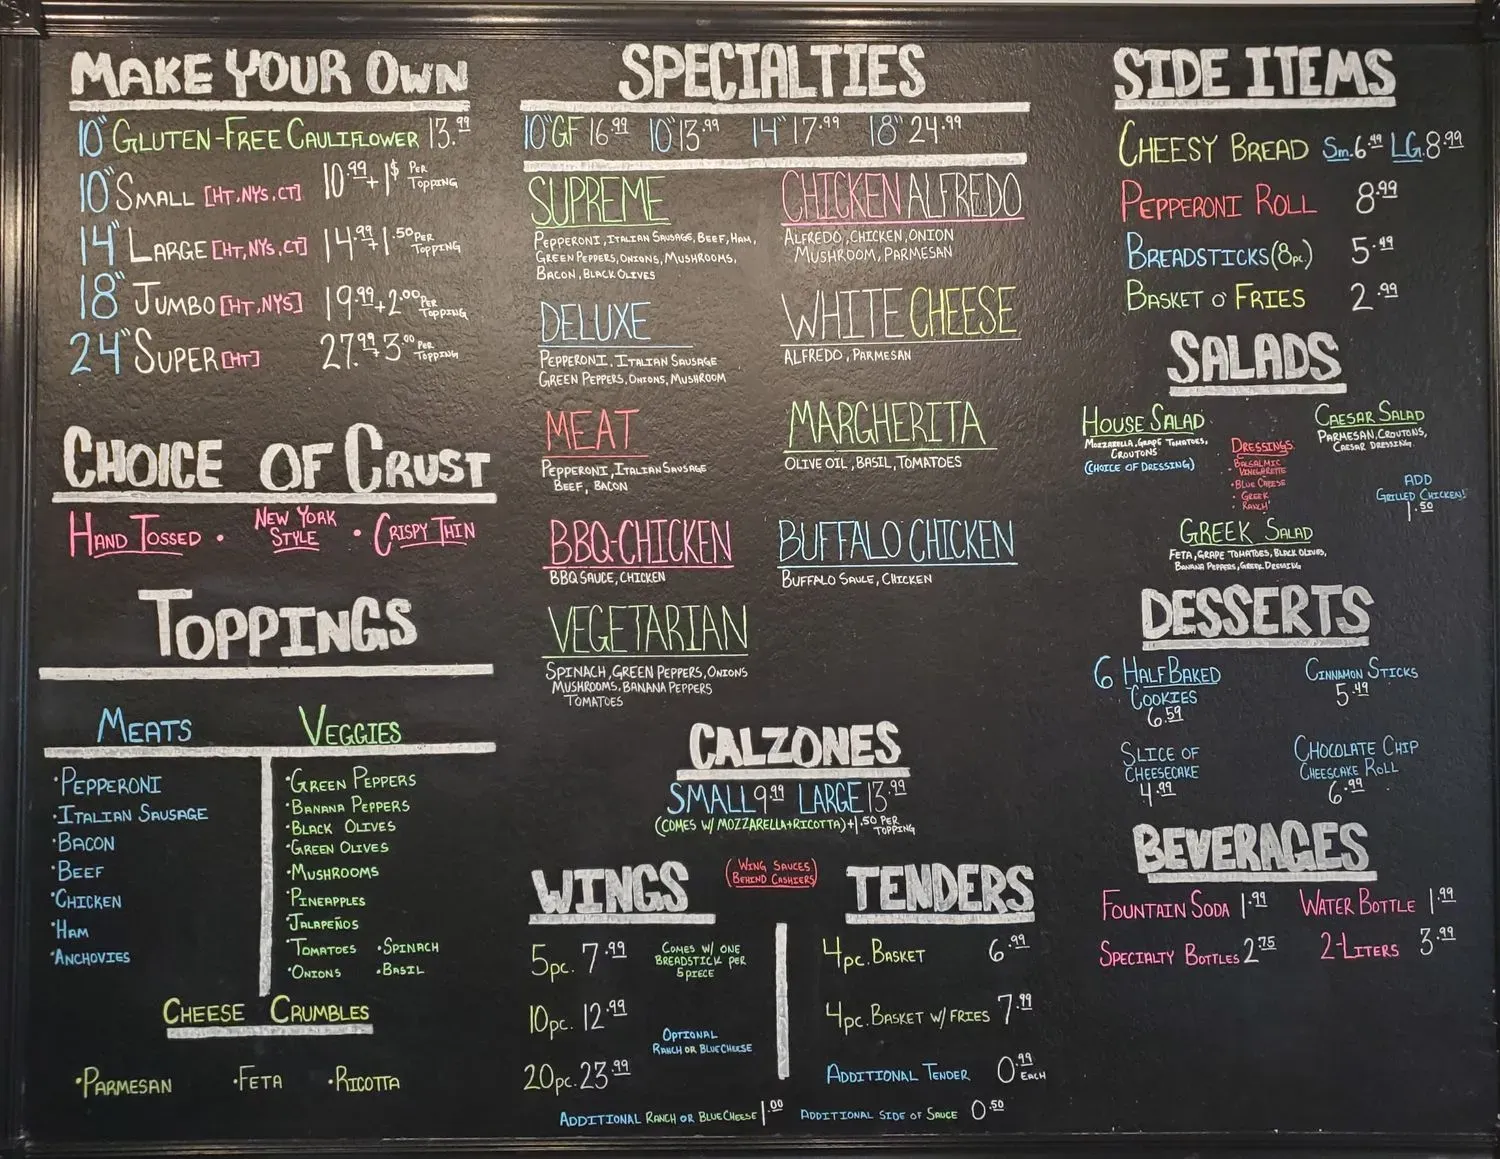 MAKE YOUR OWN
10" GLUTEN-FREE CAULIFLOWER 13.99
10" SMALL [HT,NYS,CT] 10.99 + 1$ PER TOPPING
14" LARGE [HT,NYS,CT] 14.99 + 1.50 PER TOPPING
18" JUMBO [HT,NYS] 19.99 + 2.00 PER TOPPING
24" SUPER [HT] 27.99 + 3.00 PER TOPPING
CHOICE OF CRUST
HAND TOSSED • NEW YORK STYLE • CRISPY THIN
TOPPINGS
MEATS
• PEPPERONI
• ITALIAN SAUSAGE
• BACON
• BEEF
• CHICKEN
• HAM
• ANCHOVIES
VEGGIES
• GREEN PEPPERS
• BANANA PEPPERS
• BLACK OLIVES
• GREEN OLIVES
• MUSHROOMS
• PINEAPPLES
• JALAPEÑOS
• TOMATOES • SPINACH
• ONIONS • BASIL
CHEESE CRUMBLES
• PARMESAN • FETA • RICOTTA
SPECIALTIES
10" GF 16.99 10" 13.99 14" 17.99 18" 24.99
SUPREME
PEPPERONI, ITALIAN SAUSAGE, BEEF, HAM,
GREEN PEPPERS, ONIONS, MUSHROOMS,
BACON, BLACK OLIVES
DELUXE
PEPPERONI, ITALIAN SAUSAGE
GREEN PEPPERS, ONIONS, MUSHROOM
MEAT
PEPPERONI, ITALIAN SAUSAGE
BEEF, BACON
BBQ-CHICKEN
BBQ SAUCE, CHICKEN
VEGETARIAN
SPINACH, GREEN PEPPERS, ONIONS
MUSHROOMS, BANANA PEPPERS
TOMATOES
CHICKEN ALFREDO
ALFREDO, CHICKEN, ONION
MUSHROOM, PARMESAN
WHITE CHEESE
ALFREDO, PARMESAN
MARGHERITA
OLIVE OIL, BASIL, TOMATOES
BUFFALO CHICKEN
BUFFALO SAUCE, CHICKEN
CALZONES
SMALL 9.99 LARGE 13.99
(COMES W/ MOZZARELLA+RICOTTA) + 1.50 PER TOPPING
WINGS
(WING SAUCES
BEHIND CASHIERS)
5pc. 7.99
COMES W/ ONE
BREADSTICK PER
5 PIECE
10pc. 12.99
OPTIONAL
RANCH OR BLUE CHEESE
20pc. 23.99
TENDERS
4pc. BASKET 6.99
4pc. BASKET W/ FRIES 7.99
ADDITIONAL TENDER 0.99 EACH
ADDITIONAL RANCH OR BLUE CHEESE 1.00
ADDITIONAL SIDE OF SAUCE 0.50
SIDE ITEMS
CHEESY BREAD SM. 6.49 LG. 8.99
PEPPERONI ROLL 8.99
BREADSTICKS (8pc.) 5.49
BASKET O' FRIES 2.99
SALADS
HOUSE SALAD
MOZZARELLA, GRAPE TOMATOES,
CROUTONS
(CHOICE OF DRESSING)
DRESSINGS:
• BALSALMIC
VINEGARETTE
• BLUE CHEESE
• GREEK
• RANCH
CAESAR SALAD
PARMESAN, CROUTONS,
CAESAR DRESSING
ADD
GRILLED CHICKEN!
1.50
GREEK SALAD
FETA, GRAPE TOMATOES, BLACK OLIVES,
BANANA PEPPERS, GREEK DRESSING
DESSERTS
6 HALF BAKED
COOKIES
6.59
CINNAMON STICKS
5.49
SLICE OF
CHEESECAKE
4.99
CHOCOLATE CHIP
CHEESCAKE ROLL
6.99
BEVERAGES
FOUNTAIN SODA 1.99 WATER BOTTLE 1.99
SPECIALTY BOTTLES 2.75 2-LITERS 3.99